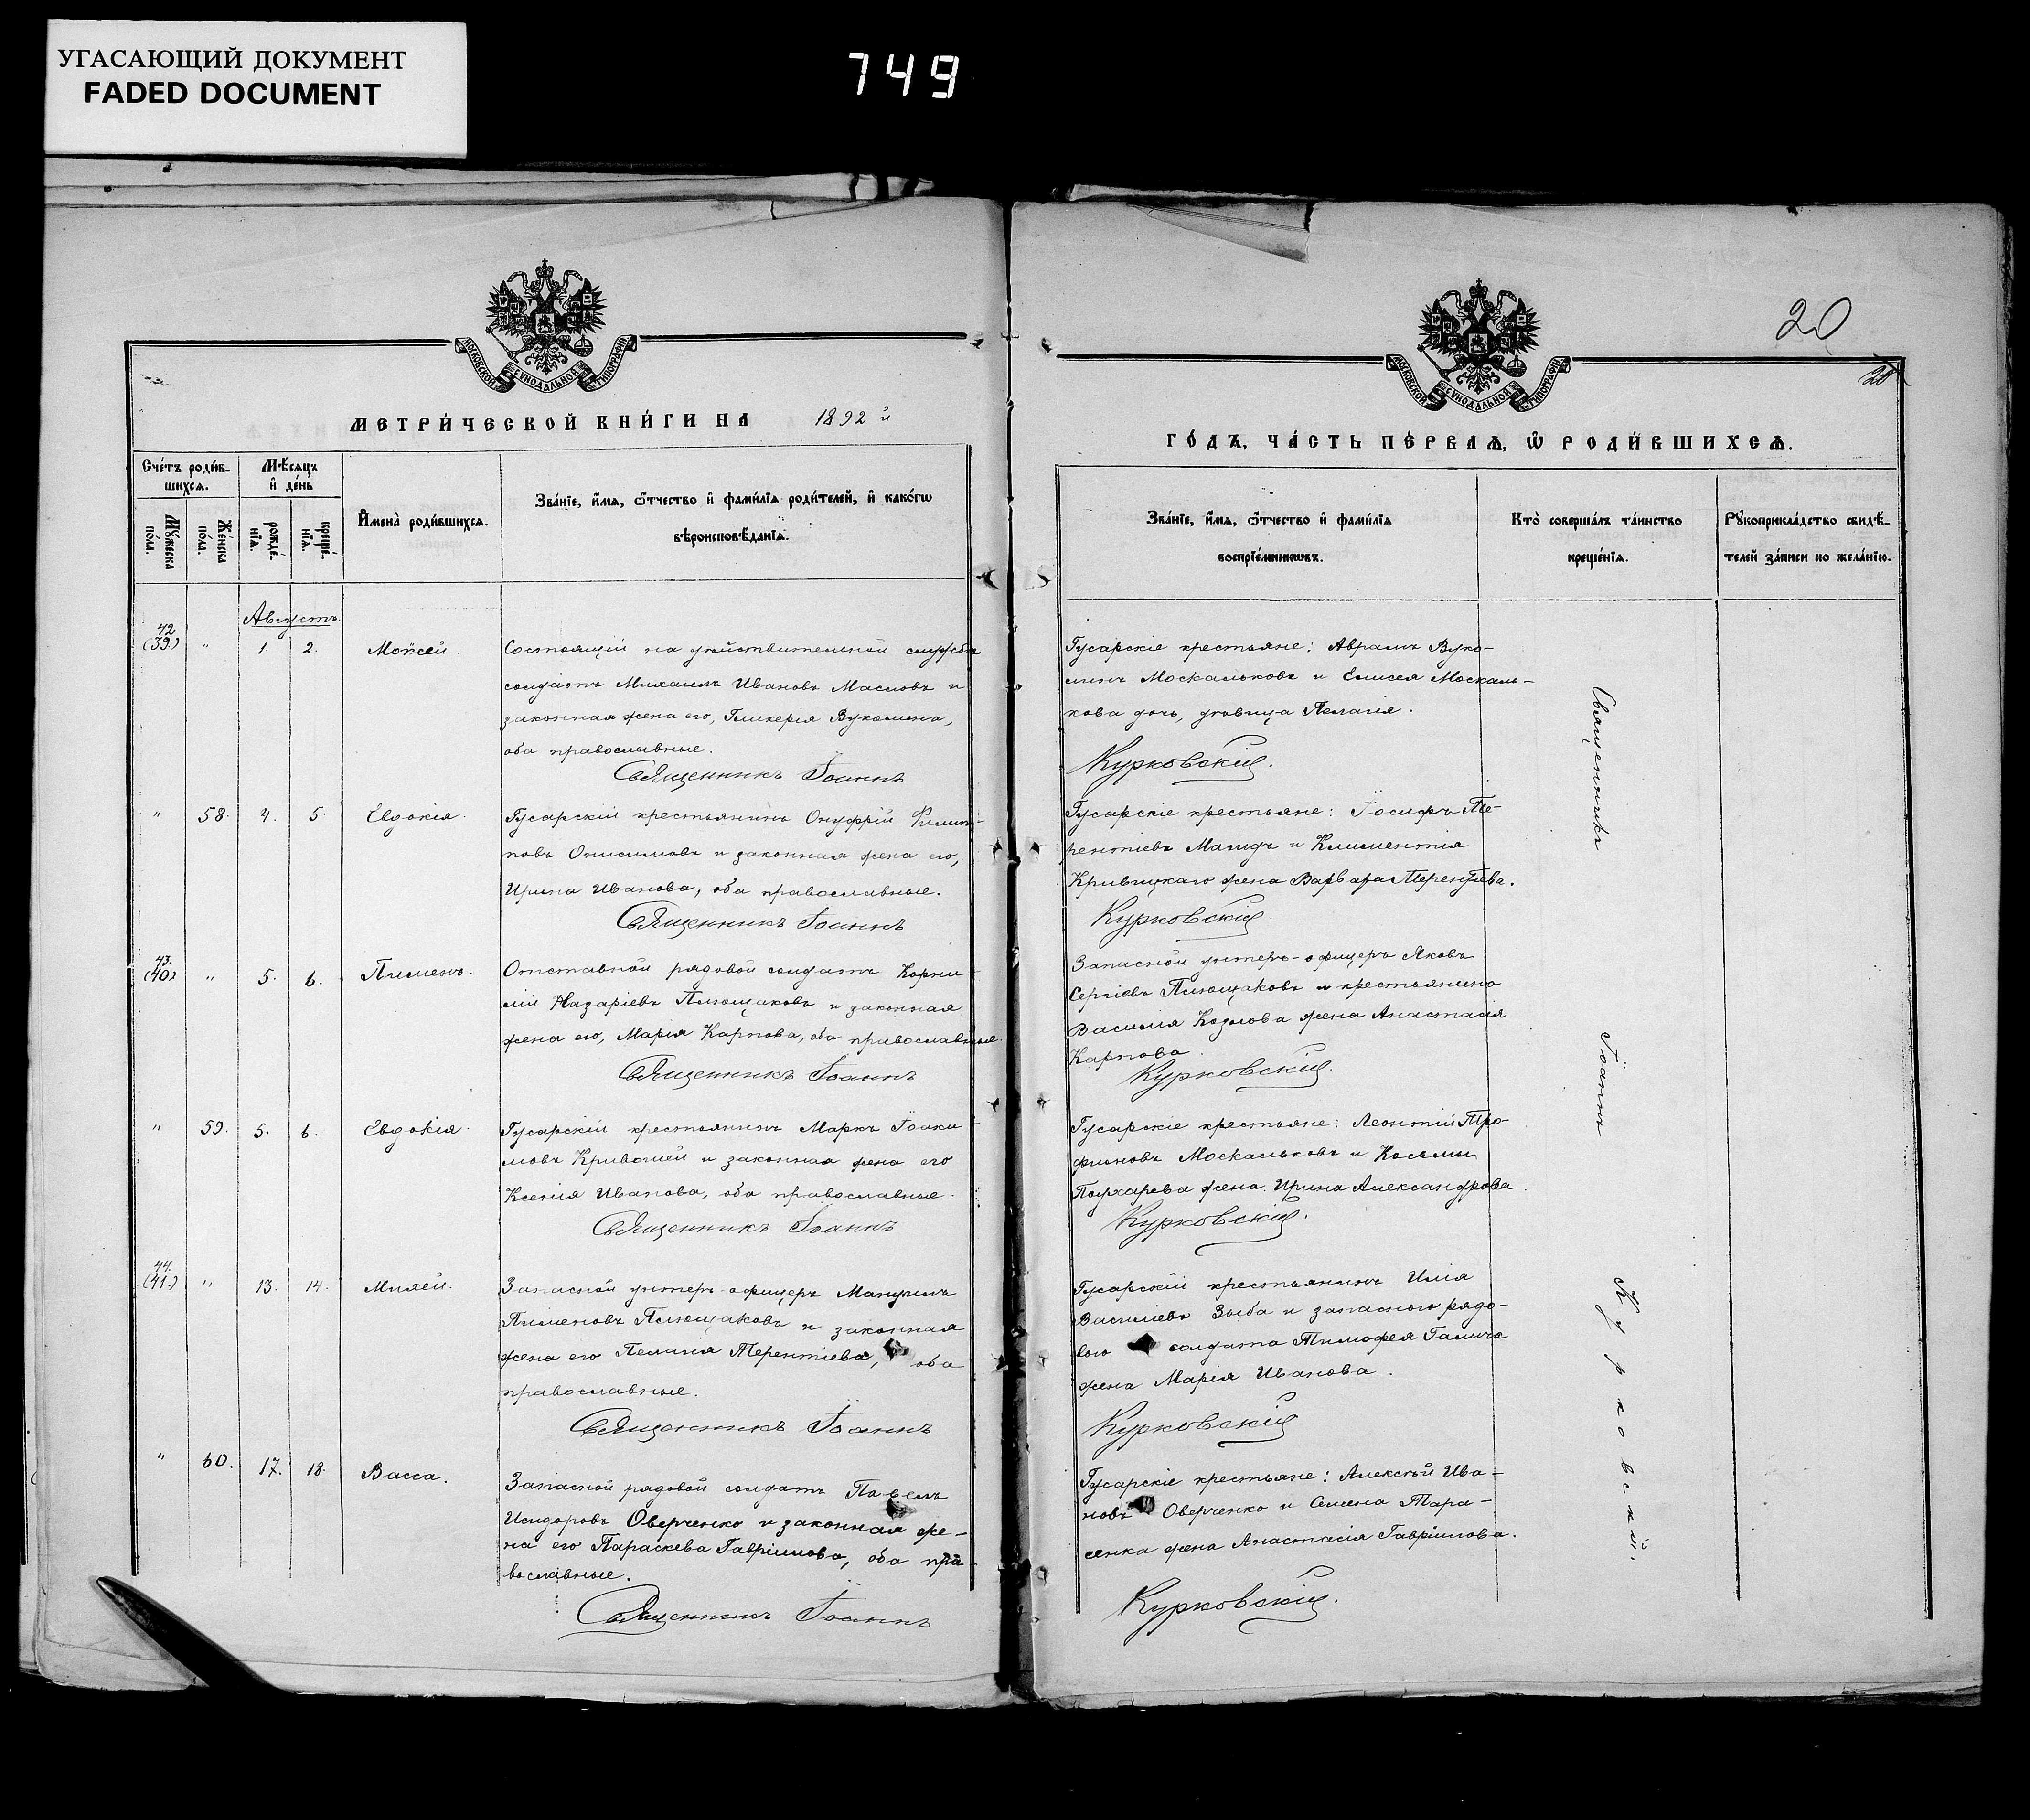 УГАСАЮЩИЙ ДОКУМЕНТ
FADED DOCUMENT
749
МОСКОВСКОЙ СУНОДАЛЬНОЙ ТИПОГРАФІИ
МЕТРИ́ЧЕСКОЙ КНИ́ГИ НА 1892 й
Сче́тъ роди́в-
шихсѧ.
Мѣ́сѧцъ
и҆ де́нь
Мꙋ́жеска
по́ла.
Же́нска
по́ла.
рожде́-
нїѧ.
креще́-
нїѧ.
И҆мена̀ роди́вшихсѧ.
Зва́нїе, и҆́мѧ, ѻ҆́тчество и҆ фами́лїѧ роди́телей, и҆ како́гѡ
вѣроисповѣ́данїѧ.
Августъ.
42
(39.) " 1. 2. Моѵсей. Состоящій на действительной службѣ
солдатъ Михаилъ Ивановъ Масловъ и
законная жена его, Гликерія Вуколова,
оба православные.
Священникъ Іоаннъ
" 58. 4. 5. Евдокія. Гусарскій крестьянинъ Онуфрій Филип-
повъ Онисимовъ и законная жена его,
Ирина Иванова, оба православные.
Священникъ Іоаннъ
43.
(40.) " 5. 6. Пименъ. Отставной рядовой солдатъ Корни-
лій Назаріевъ Плющаковъ и законная
жена его, Марія Карпова, оба православные.
Священникъ Іоаннъ
" 59. 5. 6. Евдокія. Гусарскій крестьянинъ Маркъ Іоаки-
мовъ Кривошей и законная жена его
Ксенія Иванова, оба православные.
Священникъ Іоаннъ
44.
(41.) " 13. 14. Михей. Запасной унтеръ-офицеръ Мануилъ
Пименовъ Плющаковъ и законная
жена его Пелагія Терентіева, оба
православные.
Священникъ Іоаннъ
" 60. 17. 18. Васса. Запасной рядовой солдатъ Павелъ
Исидоровъ Оверченко и законная же-
на его Параскева Гавріилова, оба пра-
вославные.
Священникъ Іоаннъ
20
20
МОСКОВСКОЙ СУНОДАЛЬНОЙ ТИПОГРАФІИ
ГО́ДЪ, ЧА́СТЬ ПЕ́РВАѦ, Ѡ҆ РОДИ́ВШИХСѦ.
Зва́нїе, и҆́мѧ, ѻ҆́тчество и҆ фами́лїѧ
воспрїе́мникѡвъ.
Кто̀ соверша́лъ та́инство
креще́нїѧ.
Рꙋкоприкла́дство свидѣ́-
телей за́писи по жела́нїю.
Гусарскіе крестьяне: Аврамъ Вуко-
линъ Москальковъ и Елисея Москаль-
кова дочь, дѣвица Пелагія.
Курковскій.
Гусарскіе крестьяне: Іосифъ Те-
рентіевъ Магидъ и Климентія
Кривицкаго жена Варвара Терентіева.
Курковскій
Запасной унтеръ-офицеръ Яковъ
Сергіевъ Плющаковъ и крестьянина
Василія Козлова жена Анастасія
Карпова.
Курковскій.
Гусарскіе крестьяне: Леонтій Тро-
фимовъ Москальковъ и Косьмы
Пожарева жена Ирина Александрова.
Курковскій.
Гусарскій крестьянинъ Илія
Василіевъ Зыба и запасного рядо-
вого солдата Тимофея Галича
жена Марія Иванова.
Курковскій
Гусарскіе крестьяне: Алексѣй Ива-
новъ Оверченко и Семена Тара-
сенка жена Анастасія Гавріилова.
Курковскій.
Священникъ Іоаннъ Курковскій.